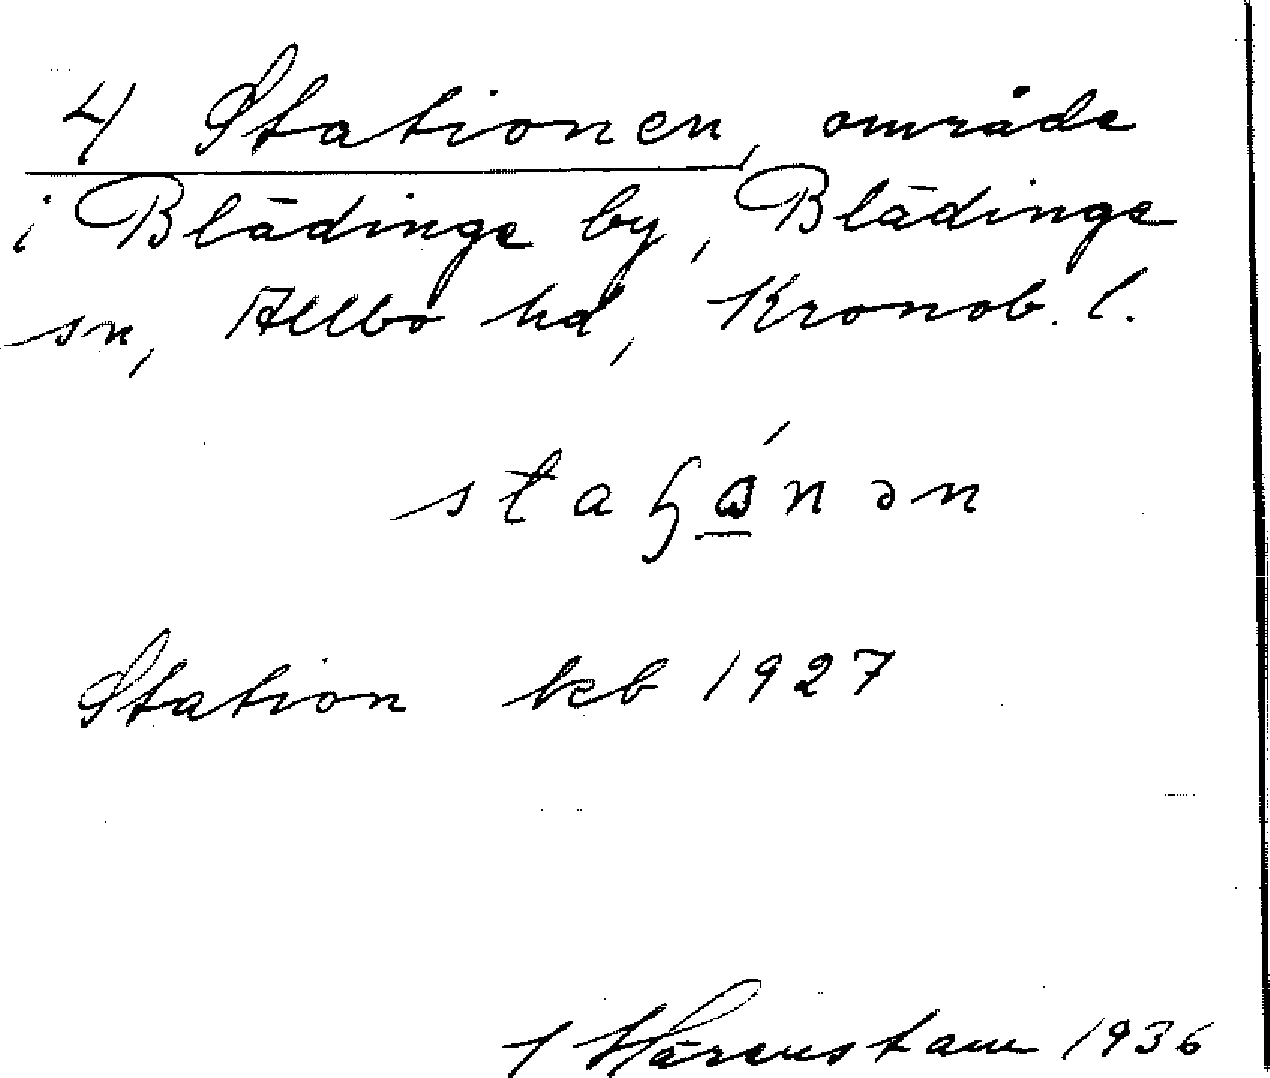 4 Stationen, område
i Blädinge by, Blädinge
sn, Allbo hd, Kronob. l.
staɧώnən
Station kb 1927
Härenstam 1936